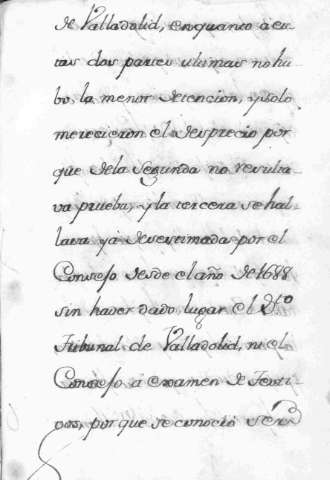 de Valladolid, en quanto a es-
tas dos partes ultimas no hu
bo, la menor detencion, y solo
merecieron el desprecio por
que de la segunda no resulta
va prueba, y la tercera se hal
lava ya desestimada por el
Consejo desde el año de 1688
sin haver dado lugar el Dho
Tribunal de Valladolid, ni el
Consejo a examen de Testi
gos, por que se conocio ser